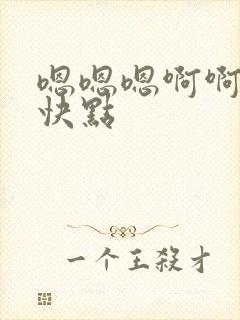 嗯嗯嗯啊啊
快點
一个王殺才